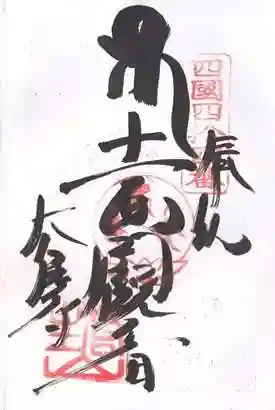 四國四十四番
奉納
十一面觀音
大宝寺